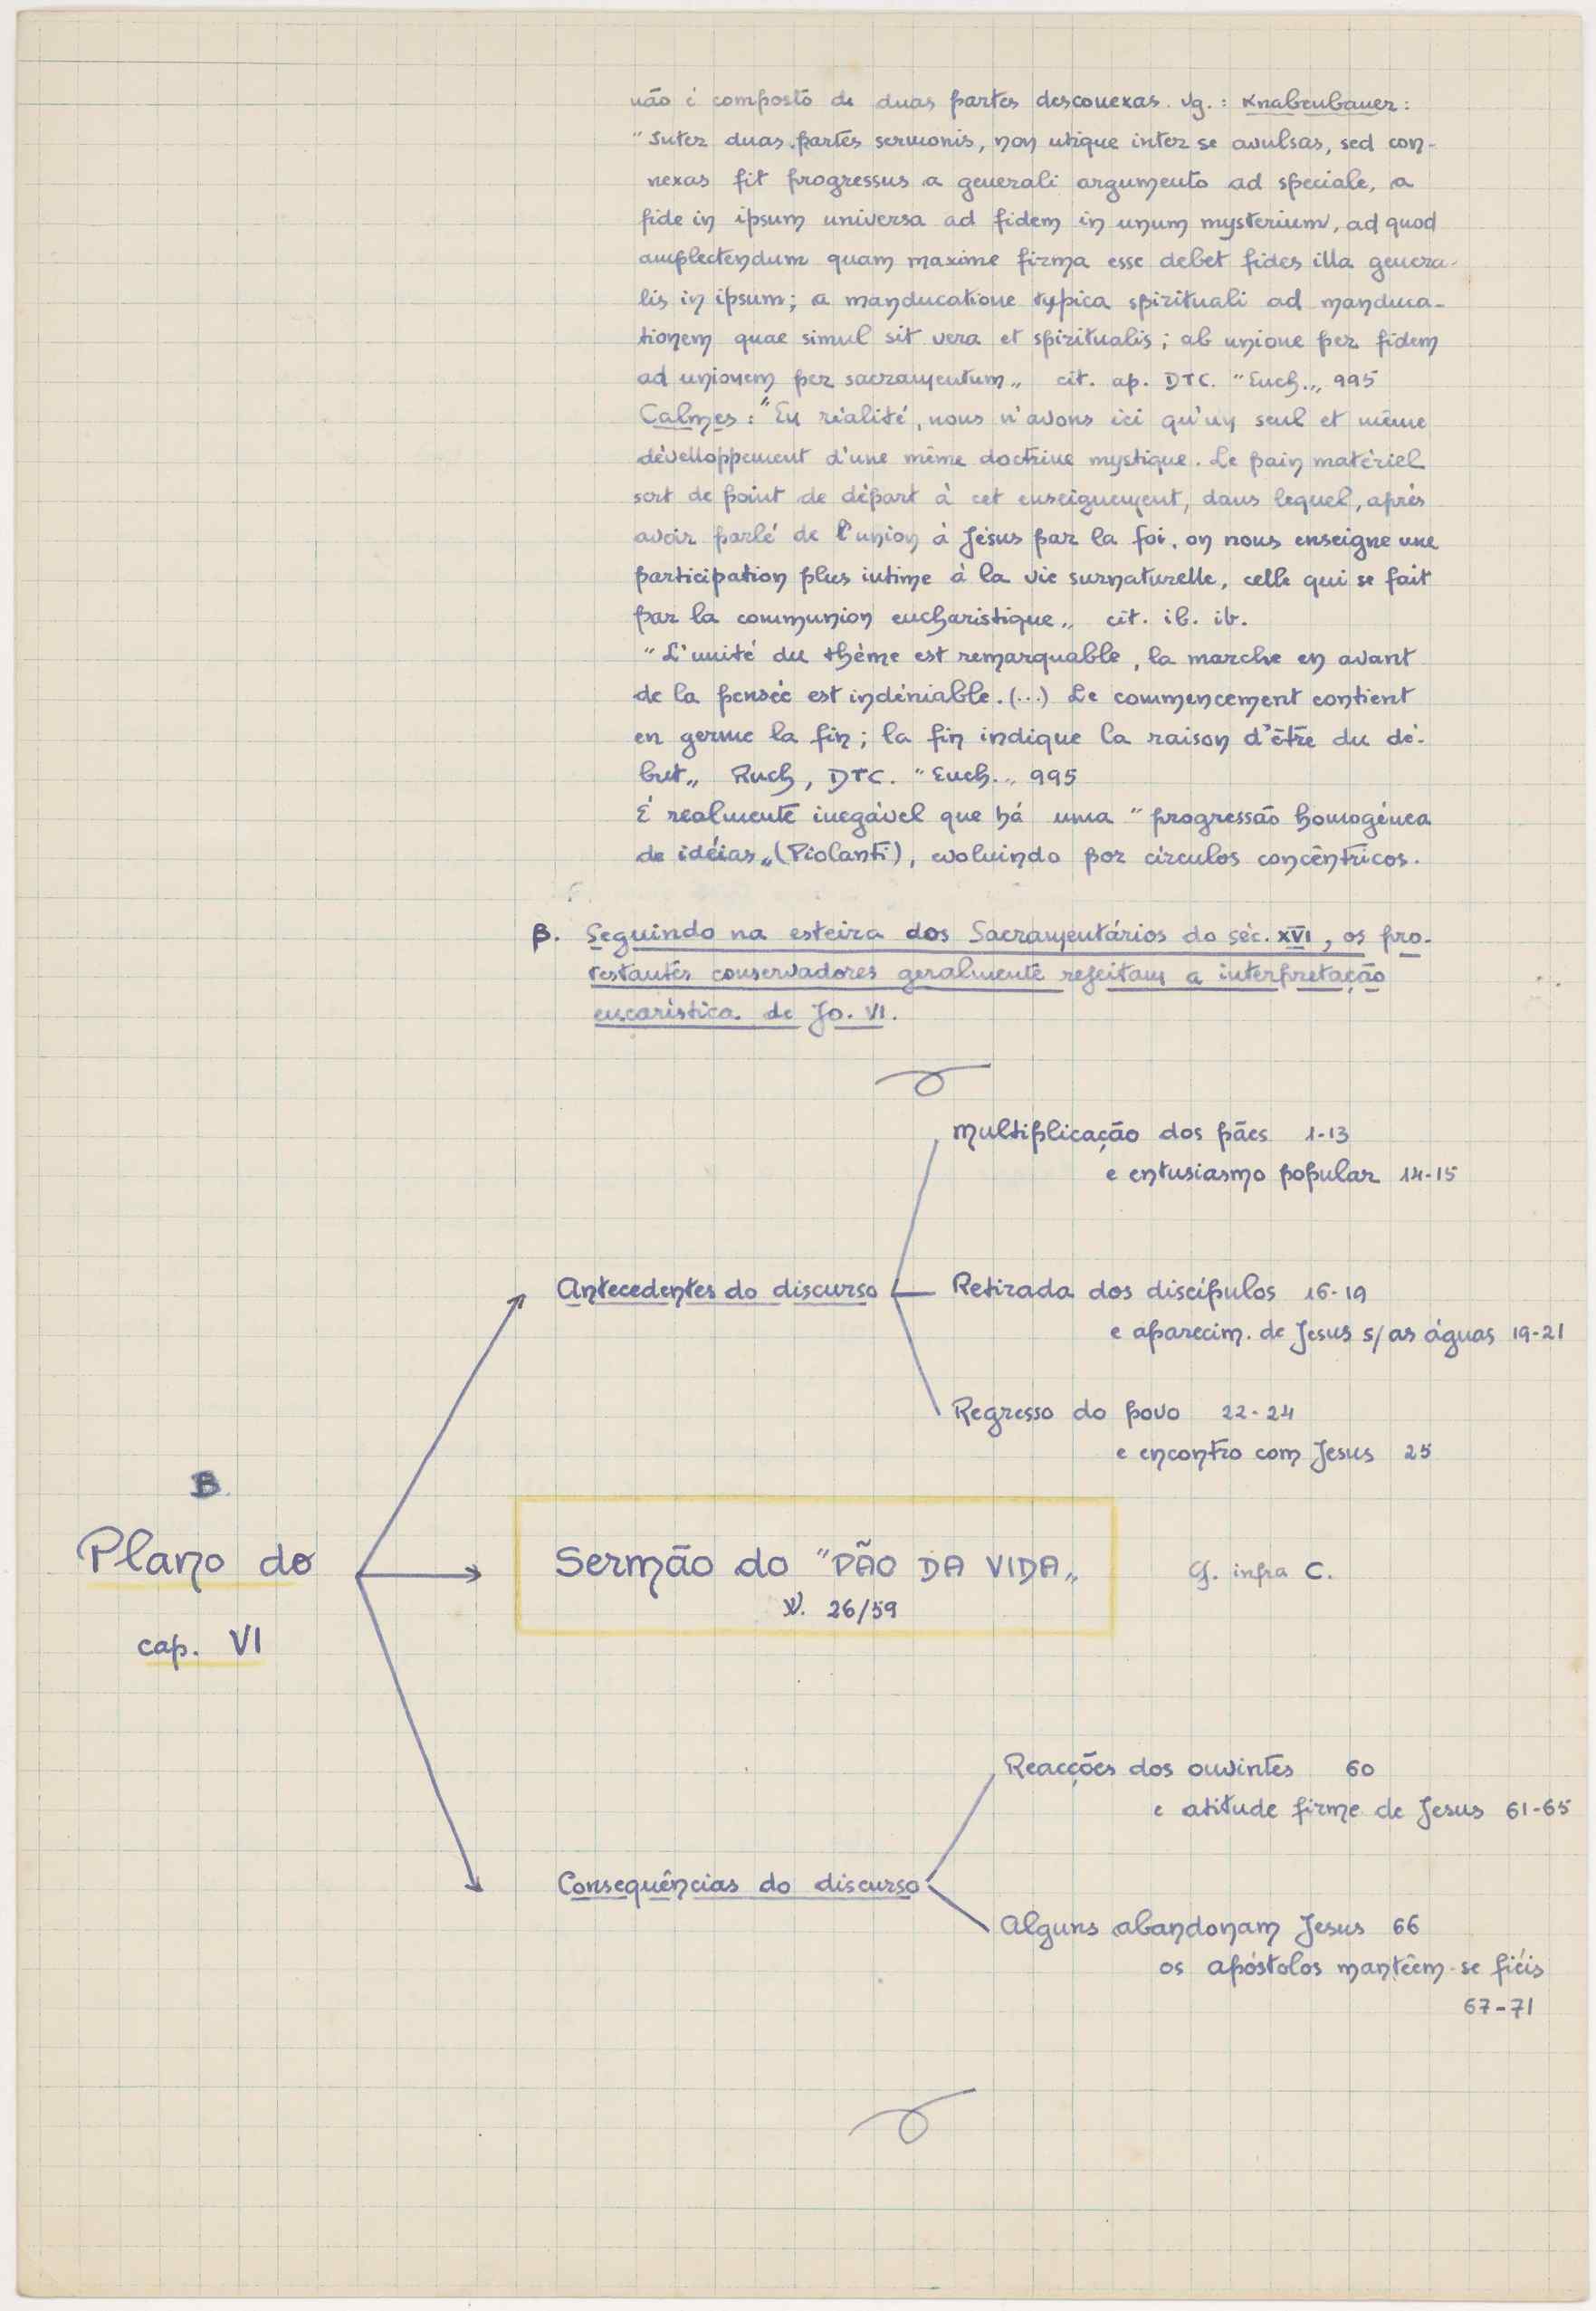 não é composto de duas partes desconexas. Vg.: Knabenbauer:
"Inter duas partes sermonis, non utique inter se avulsas, sed con-
nexas fit progressus a generali argumento ad speciale, a
fide in ipsum universa ad fidem in unum mysterium, ad quod
amplectendum quam maxime firma esse debet fides illa genera-
lis in ipsum; a manducatione typica spirituali ad manduca-
tionem quae simul sit vera et spiritualis; ab unione per fidem
ad unionem per sacramentum„ cit. ap. DTC. "Euch.„ 995
Calmes: "En réalité, nous n'avons ici qu'un seul et même
dévelloppement d'une même doctrine mystique. Le pain matériel
sert de point de départ à cet enseignement, dans lequel, après
avoir parlé de l'union à Jésus par la foi, on nous enseigne une
participation plus intime à la vie surnaturelle, celle qui se fait
par la communion eucharistique„ cit. ib. ib.
"L'unité du thème est remarquable, la marche en avant
de la pensée est indéniable. (...) Le commencement contient
en germe la fin; la fin indique la raison d'être du dé-
but„ Ruch, DTC. "Euch.„ 995
É realmente inegável que há uma "progressão homogénea
de idéias„ (Piolanti), evoluindo por círculos concêntricos.
β. Seguindo na esteira dos Sacramentários do séc. XVI, os pro-
testantes conservadores geralmente rejeitam a interpretação
eucarística de Jo. VI.
Multiplicação dos pães 1-13
e entusiasmo popular 14-15
Antecedentes do discurso
Retirada dos discípulos 16-19
e aparecim. de Jesus s/ as águas 19-21
Regresso do povo 22-24
e encontro com Jesus 25
B.
Plano do
cap. VI
Sermão do "PÃO DA VIDA„
vv. 26/59
Cf. infra C.
Reacções dos ouvintes 60
e atitude firme de Jesus 61-65
Consequências do discurso
Alguns abandonam Jesus 66
os apóstolos mantêem-se fiéis
67-71